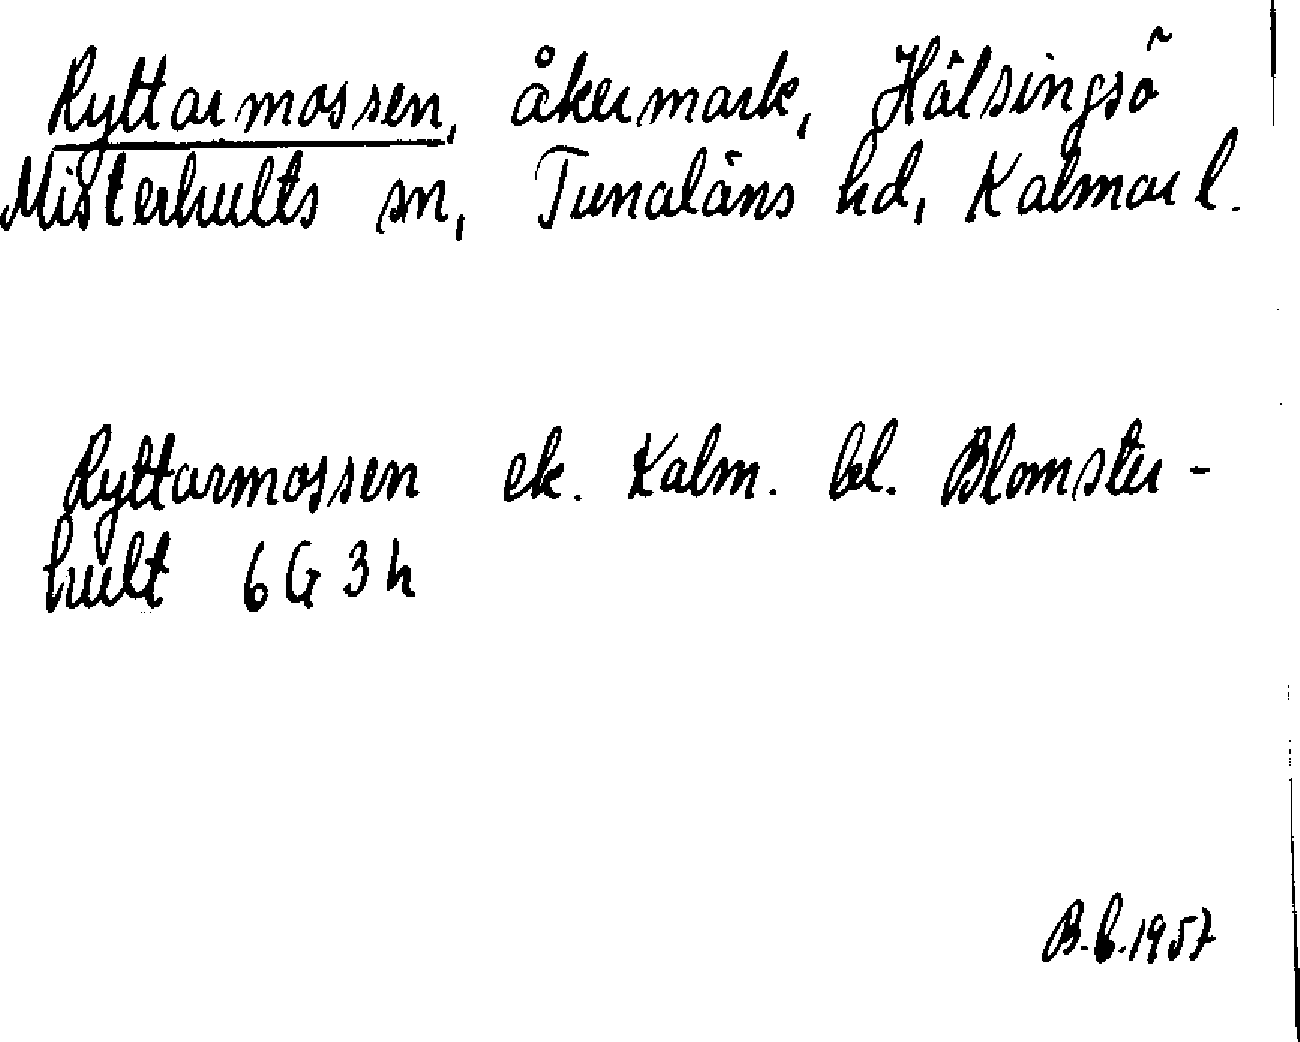 Ryttarmossen, åkermark, Hälsingsö
Misterhults sn, Tunaläns hd, Kalmar l.
Ryttarmossen ek. Kalm. bl. Blomster-
hult 6G3h
B.b.1957